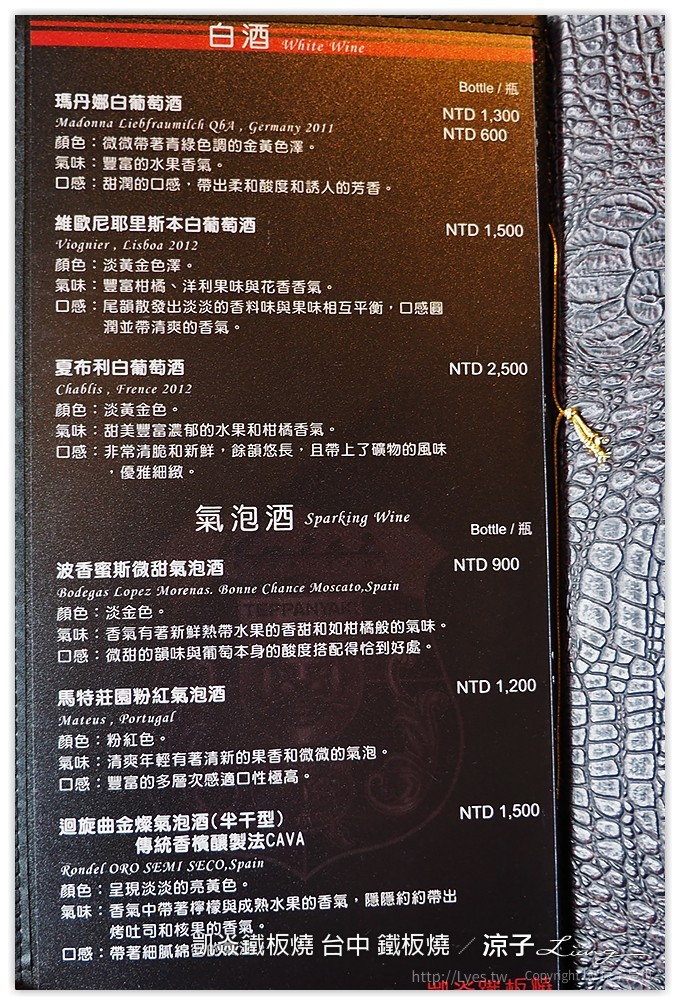 白酒 White Wine
Bottle / 瓶
瑪丹娜白葡萄酒 NTD 1,300
Madonna Liebfraumilch QbA , Germany 2011 NTD 600
顏色：微微帶著青綠色調的金黃色澤。
氣味：豐富的水果香氣。
口感：甜潤的口感，帶出柔和酸度和誘人的芳香。
維歐尼耶里斯本白葡萄酒 NTD 1,500
Viognier , Lisboa 2012
顏色：淡黃金色澤。
氣味：豐富柑橘、洋利果味與花香香氣。
口感：尾韻散發出淡淡的香料味與果味相互平衡，口感圓
潤並帶清爽的香氣。
夏布利白葡萄酒 NTD 2,500
Chablis , Frence 2012
顏色：淡黃金色。
氣味：甜美豐富濃郁的水果和柑橘香氣。
口感：非常清脆和新鮮，餘韻悠長，且帶上了礦物的風味
，優雅細緻。
氣泡酒 Sparking Wine
Bottle / 瓶
波香蜜斯微甜氣泡酒 NTD 900
Bodegas Lopez Morenas. Bonne Chance Moscato,Spain
TEPPANYAKI
顏色：淡金色。
氣味：香氣有著新鮮熱帶水果的香甜和如柑橘般的氣味。
口感：微甜的韻味與葡萄本身的酸度搭配得恰到好處。
馬特莊園粉紅氣泡酒 NTD 1,200
Mateus , Portugal
顏色：粉紅色。
氣味：清爽年輕有著清新的果香和微微的氣泡。
口感：豐富的多層次感適口性極高。
迴旋曲金燦氣泡酒(半干型) NTD 1,500
傳統香檳釀製法CAVA
Rondel ORO SEMI SECO,Spain
顏色：呈現淡淡的亮黃色。
氣味：香氣中帶著檸檬與成熟水果的香氣，隱隱約約帶出
烤吐司和核果的香氣。
口感：帶著細膩綿
凱焱鐵板燒 台中 鐵板燒 ／ 涼子 Liang
http://Lyes.tw, Copyright
凱焱鐵板燒